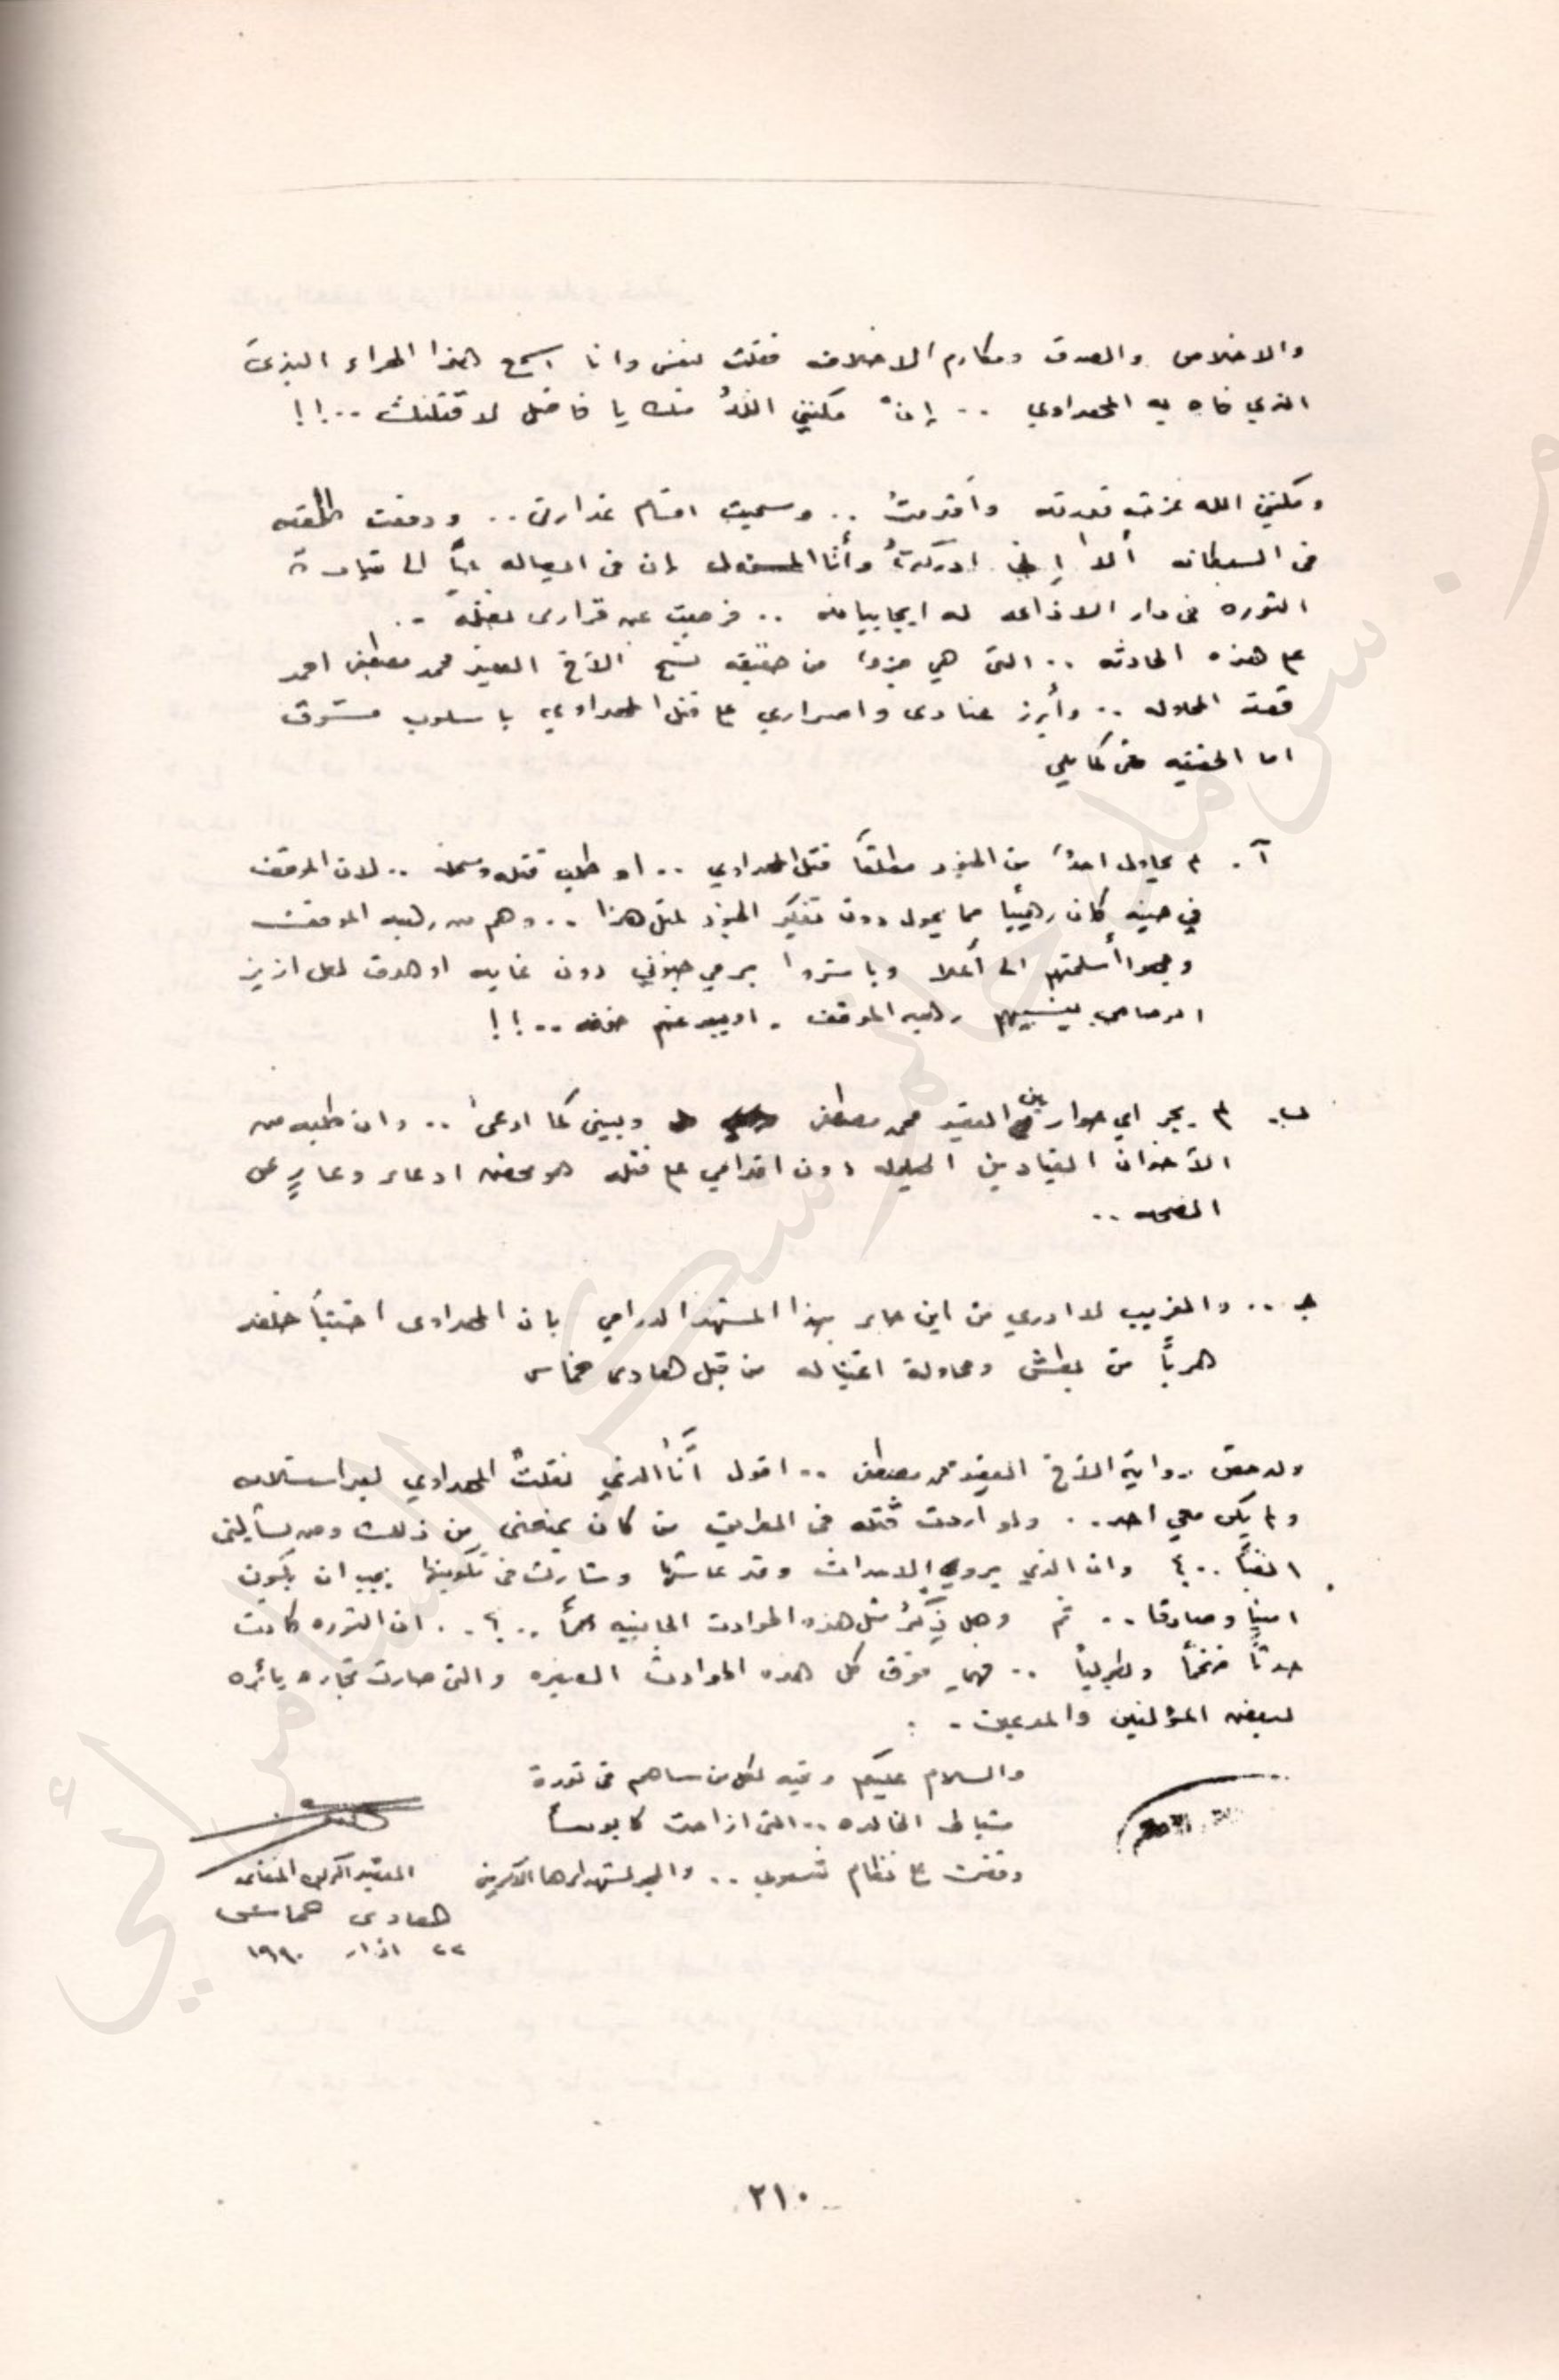 والاخلاص والصدق ومكارم الاخلاق فقلت لنفسي وانا اسمع هذا الهراء البذيء
الذي فاه به المهداوي .. إنْ مكنني اللهُ منك يا فاضل لاقتلنك ..!!
ومكنني الله عزت قدرته وأقدمتُ .. وسحبت اقسام غدارتي .. ودفعت الطلقه
في السبطانه ألا إني ادركتُ وأنا المسؤول بان في ايصاله حياً الى قيادة
الثوره في دار الاذاعه له ايجابياته .. فرجعت عن قراري بقتله ..
على هذه الحادثه .. التي هي جزءا من حقيقه نسج الأخ العقيد محمد مصطفى احمد
قصة المحاوله .. وأبرز عنادي واصراري على قتل المهداوي باسلوب مشوق
اما الحقيقه فهي كما يلي
آ . لم يحاول احدٌ من الجنود مطلقاً قتل المهداوي .. او طلب قتله وسحله .. لان الموقف
في حينه كان رهيباً مما يحول دون تفكير الجنود لمثل هذا .. وهم من رهبه الموقف
وجهوا أسلحتهم الى أعلا وباشروا برمي جنوني دون غايه او هدف لعل ازيز
الرصاص ينسيهم رهبه الموقف . او يبعد عنهم خوفه ..!!
ب. لم يجر اي حوار بين العقيد محمد مصطفى وبيني كما ادعى .. وان طلبه من
الأخوان القياديين الحيلوله دون اقدامي على قتله هو محض ادعاء وعارٍ عن
الصحه ..
جـ .. والغريب لا ادري من اين جاء بهذا المشهد الدرامي بان المهداوي اختبأ خلفه
هرباً من بطش ومحاولة اغتياله من قبل هادي خماس
ولدحض رواية الأخ العقيد محمد مصطفى .. اقول أنّا الذي نقلتُ المهداوي بعد استلامه
ولم يكن معي احد .. ولو اردت قتله في الطريق من كان يمنعني من ذلك ومن يسألني
ايضاً .. ؟ وان الذي يروي الاحداث وقد عاشها وشارك في تكوينها يجب ان يكون
اميناً وصادقا .. ثم وهل ذِكرُ مثل هذه الحوادث الجانبيه .. ؟ .. ان الثوره كانت
حدثاً ضخماً وبطولياً .. فهي فوق كل هذه الحوادث الصغيره والتي صارت تجاره بائره
لبعض المؤلفين والمدعين .
والسلام عليكم وتحيه لكل من ساهم في ثورة
شباط الخالده .. التي ازاحت كابوساً
وقضت على نظام شعوبي .. والمجد لشهدائها الأكرمين
العقيد الركن المتقاعد
هادي خماس
٢٢ اذار ١٩٩٠
٢١٠